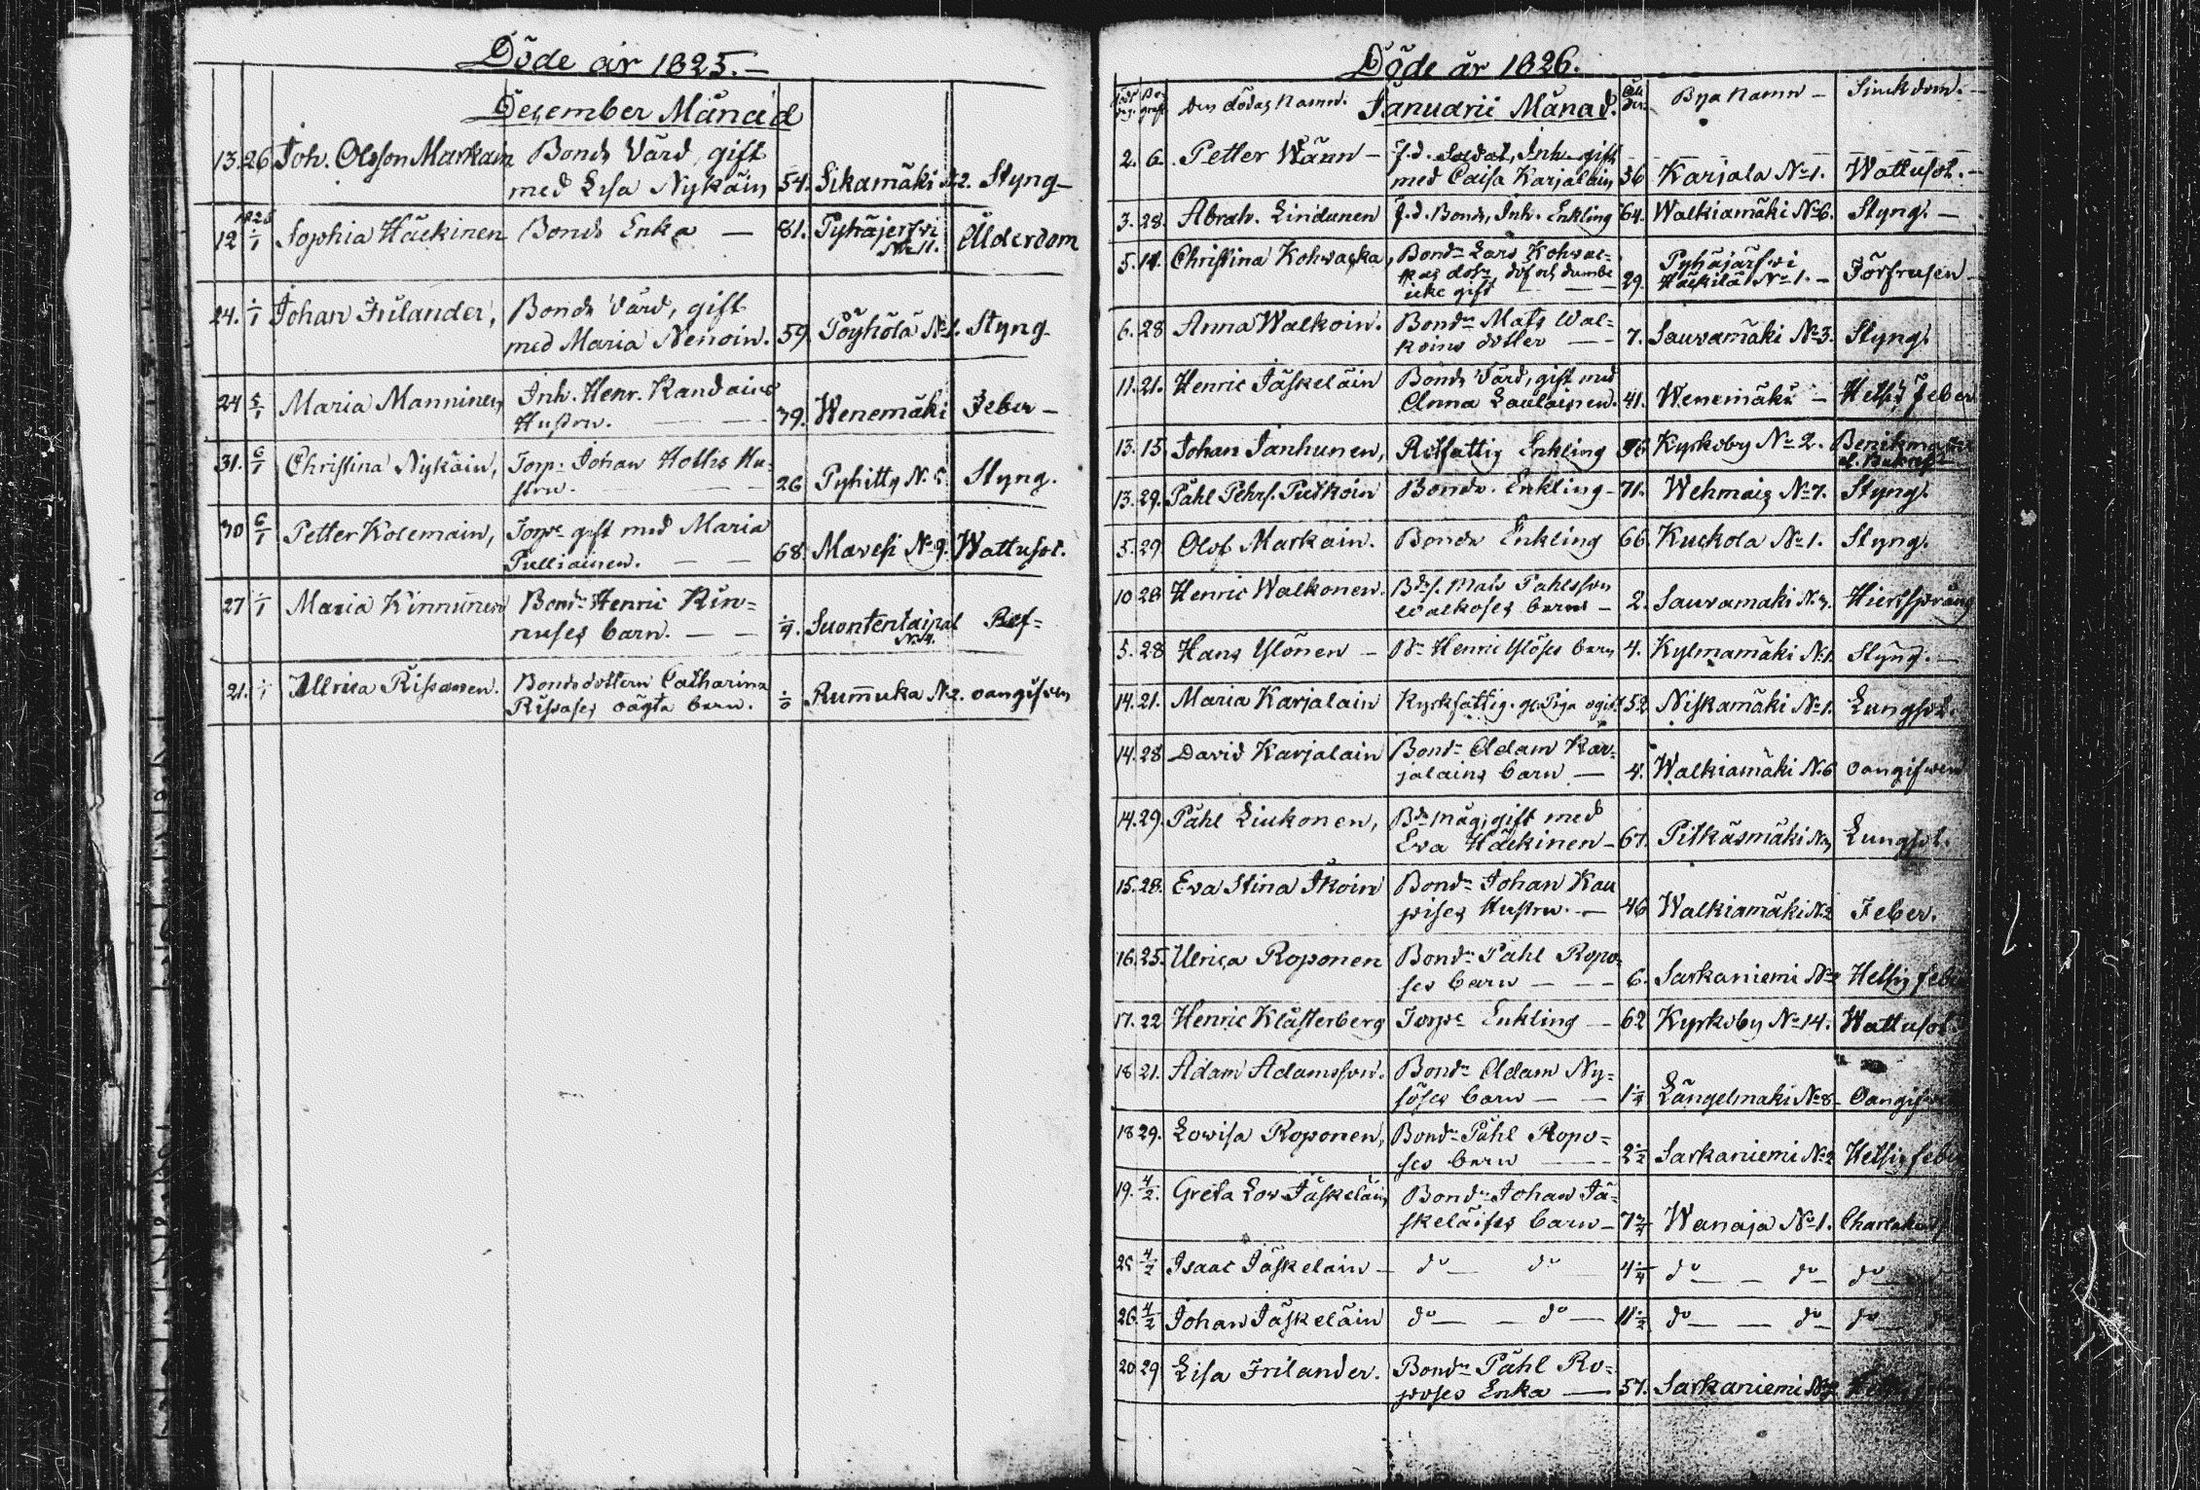 Döde år 1825.—
December Månad
13. 26 Joh. Olsson Markain Bonde Värd, gift
med Lisa Nykäin 54. Sikamäki N2. Styng—
1826
12 1/1 Sophia Häckinen Bonde Enka — 81. Pyhäjerfvi Ålderdom
N: 11.
24. 1/1 Johan Frilander, Bonde Värd, gift
med Maria Nenoin. 59. Pöyhölä N:1. Styng
24 5/1 Maria Manninen Inh. Henr. Kandaises
Hustru. — — 39. Wenemäki Feber —
31. 6/1 Christina Nykäin, Torp: Johan Hollis Hu-
stru. — — 26 Pyhitty N:5. Styng.
30 6/1 Petter Kolemain, Torpe gift med Maria
Pulliainen. — — 68. Mavesi N:9. Wattusot.
27 1/1 Maria Kinnunen Bond: Henric Kin=
nuses barn. — — 1/4. Suontentaipal Ref=
N:4.
21. 1/1 Ullrica Rissanen. Bondedottern Catharina
Rissases oägta barn. Rummuka N2. oangifven
Döde år 1826.
Den dödas Namn. Januarii Månad. Bya Namn — Siukdom.—
2. 6. Petter Wänn — f.d. Soldat, Inh. gift
med Caisa Karjalain 56 Karjala N:1. Wattusot.—
3. 28. Abrah. Lindunen f.d. Bonde, Inh. Enkling 64. Walkiamäki N:6. Styng. —
5. 14. Christina Kohwacka, Bond: Lars Kohvac- Pyhäjärfvi
kas dotr, döf och dumbe 29. Häckilä N:1. — Förfrusen —
icke gift — —
6. 28 Anna Walkoin. Bond: Mats Wal=
koins dotter — — 7. Sauvamäki N:3. Styng.
11. 21. Henric Jäskeläin Bonde Värd, gift med
Anna Laulainen. 41. Wenemäki — Hetsig feber
13. 15 Johan Janhunen, Rotfattig Enkling 76 Kyrkoby N:2.
13. 29. Påhl Pehrs. Putkoin Bonde. Enkling — 71. Wehmais N:7. Styng.
5. 29. Olof Markain. Bonde Enkling 66. Kuckola N:1. Styng.
10 28 Henric Walkonen. Bds. Mats Påhlsson
Walkoses barn — 2. Sauvamaki N:3. Hiertsprång
5. 28 Hans Ylönen — Bn Henric Ylöses barn 4. Kylmamäki N:1. Styng. —
14. 21. Maria Karjalain Kyrkfattig. gl. Piga ogift 52 Niskamäki N:1. Lungsot.
14. 28 David Karjalain Bond: Adam Kar=
jalains barn — 4. Walkiamäki N:6 oangifven
14. 29. Påhl Liukonen, Bde måg, gift med
Eva Häckinen — 67. Pitkäsmäki N:3 Lungsot.
15. 28. Eva Stina Ikoin Bond: Johan Kau
pises Hustru. — 46 Walkiamäki N2 Feber.
16. 25. Ulrica Roponen Bond: Påhl Ropo=
ses barn — — 6. Sarkaniemi N:2 Hetsig feber
17. 22 Henric Klåsterberg Torpe Enkling — 62 Kyrkoby N:14. Wattusot
18 21. Adam Adamsson. Bond: Adam Ny=
söses barn — — 1 1/4 Längelmaki N:8 Oangifven
18 29. Lovisa Roponen, Bond: Påhl Ropo=
ses barn — 2 1/2 Sarkaniemi N:2 Hetsig feber
19. 4/2. Greta Lov Jäskeläin Bond: Johan Jä=
skeläises barn — 7 3/4 Wanaja N:1.
25 4/2 Isaac Jäskeläin — do — do 4 1/4 do — — do — do
26. 4/2 Johan Jäskeläin do — — do — 11 1/2 do — — do — do
20 29 Lisa Frilander. Bond: Påhl Ro=
poses Enka — 57. Sarkaniemi N:2